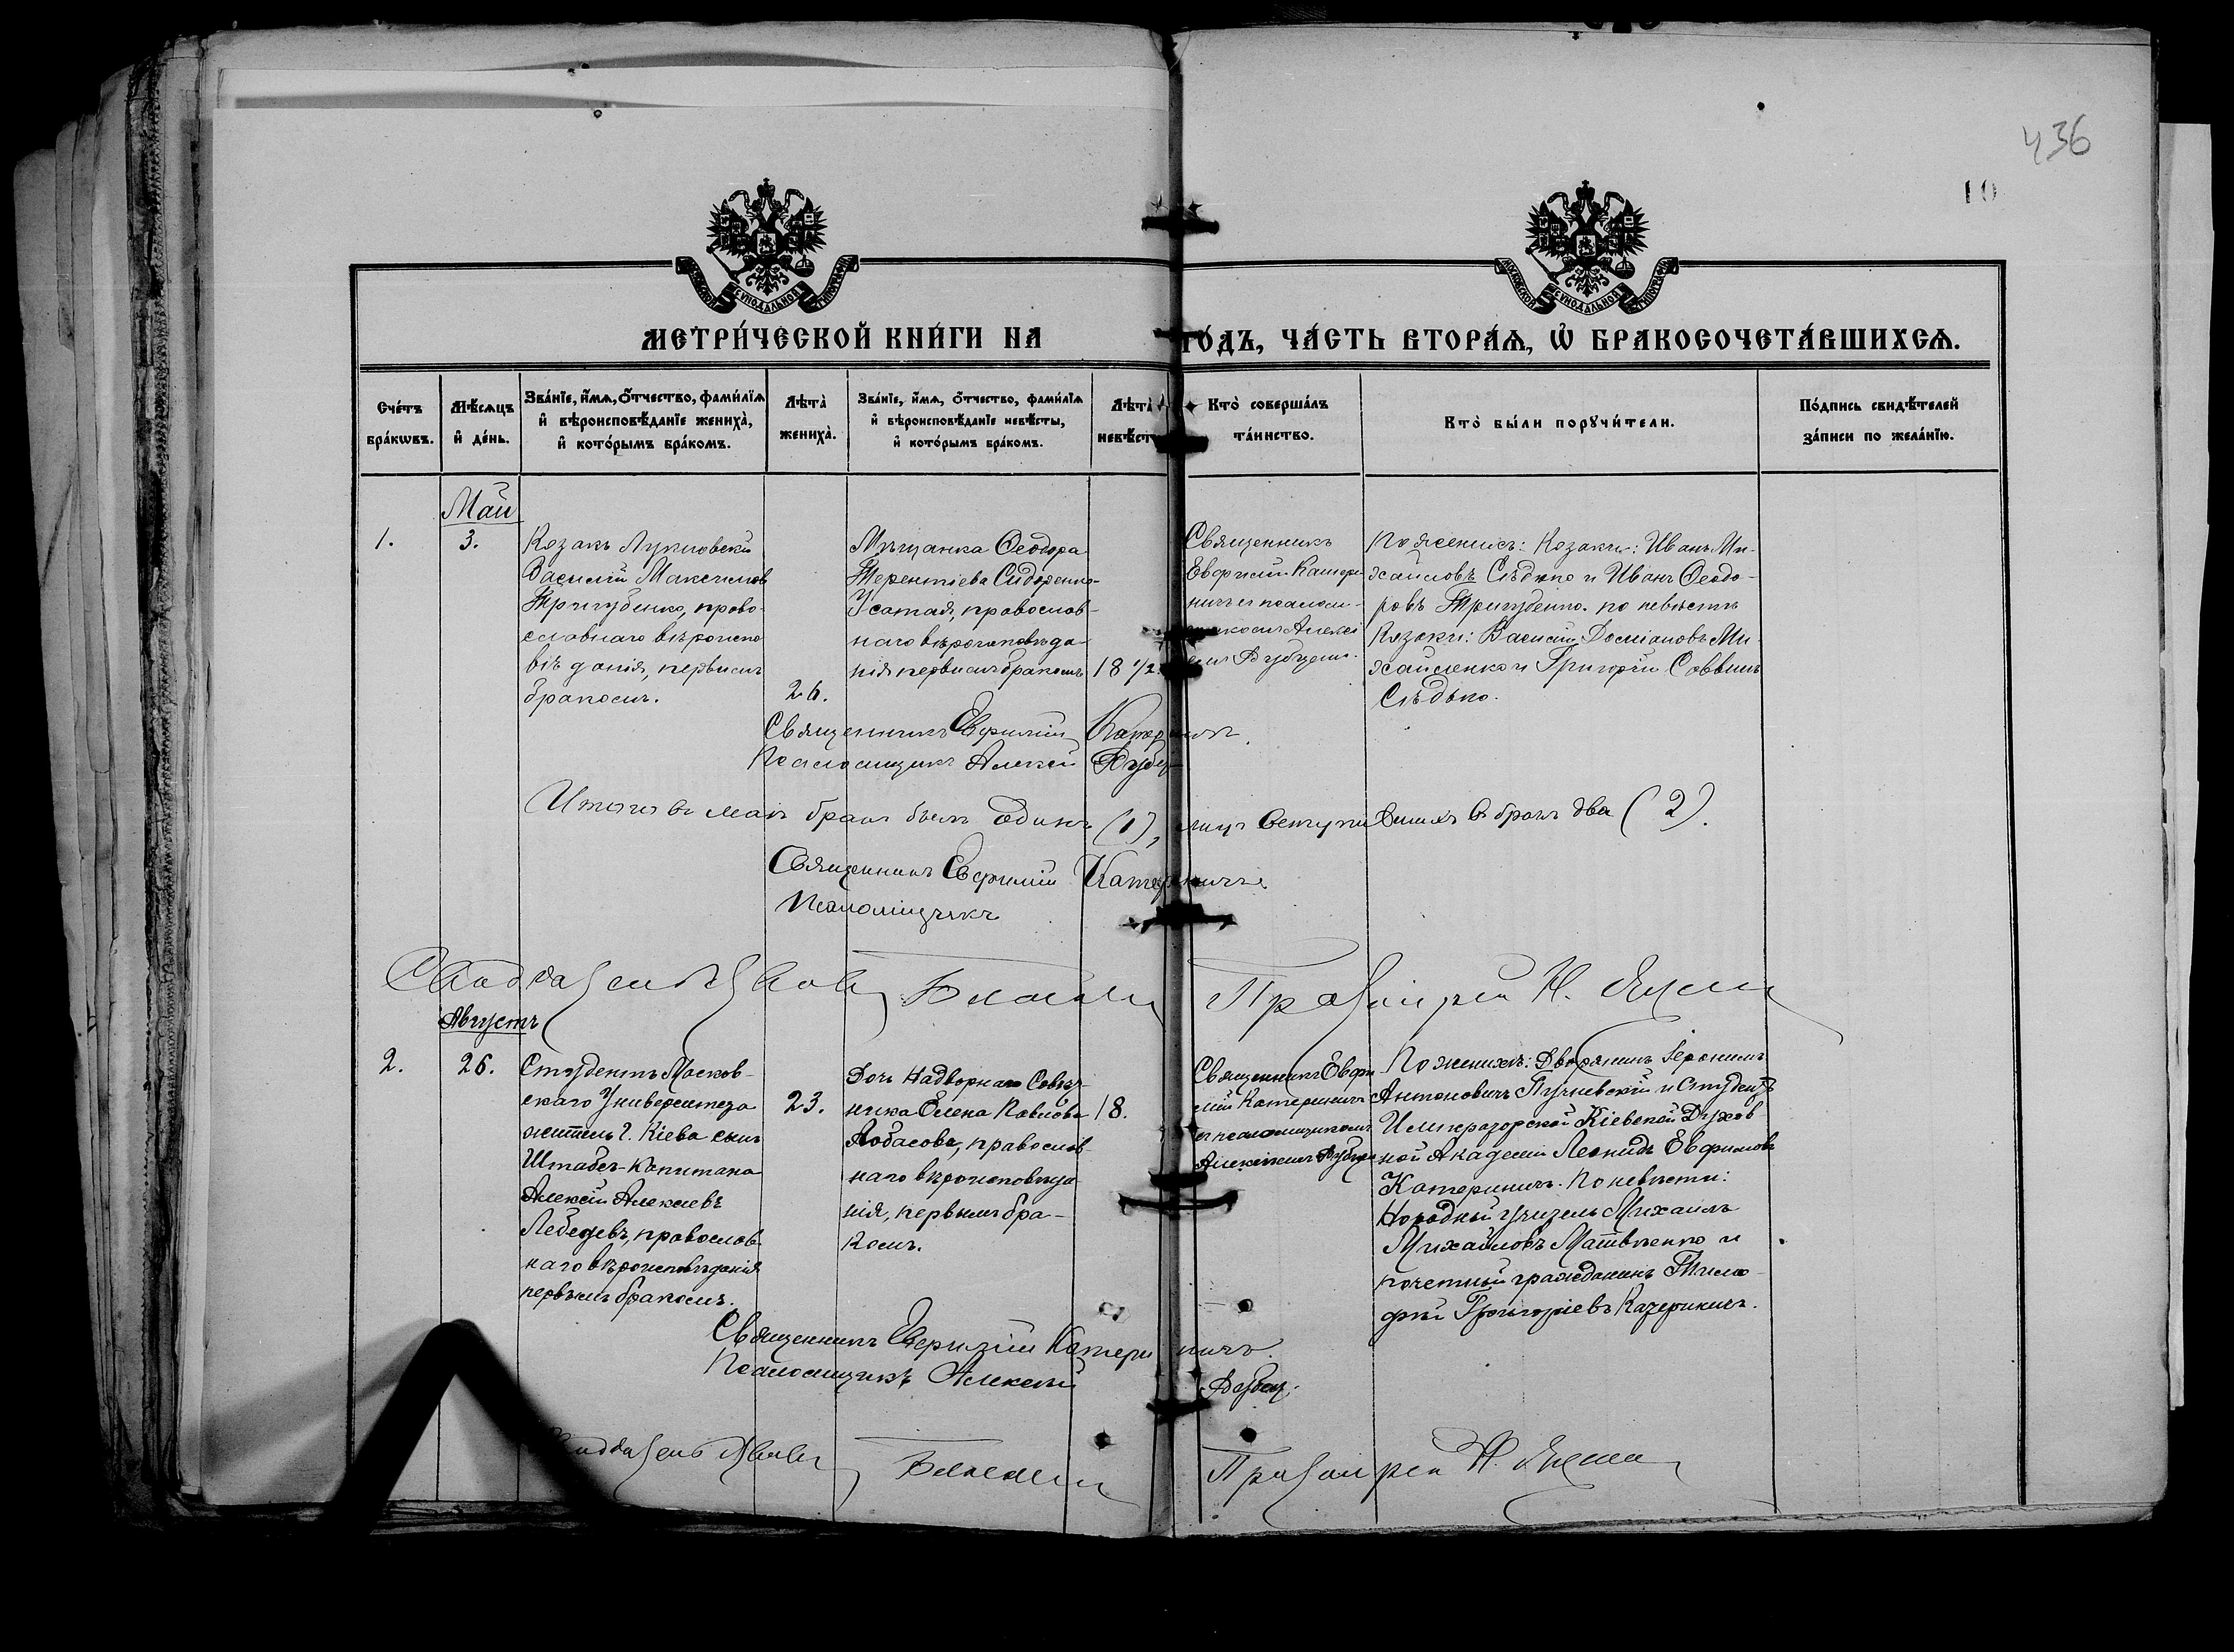 436
10
МОСКОВСКОЙ СУНОДАЛЬНОЙ ТИПОГРАФІИ
МЕТРИ́ЧЕСКОЙ КНИ́ГИ НА ГО́ДЪ, ЧА́СТЬ ВТОРА́Ѧ, Ѽ БРАКОСОЧЕТА́ВШИХСѦ.
Сче́тъ
бра́кѡвъ.
Мѣ́сѧцъ
и҆ де́нь.
Зва́нїе, и҆́мѧ, о҆́тчество, фами́лїѧ
и҆ вѣроисповѣ́данїе жениха̀,
и҆ кото́рымъ бра́комъ.
Лѣта̀
жениха̀.
Зва́нїе, и҆́мѧ, о҆́тчество, фами́лїѧ
и҆ вѣроисповѣ́данїе невѣ́сты,
и҆ кото́рымъ бра́комъ.
Лѣта̀
невѣ́ст
Кто̀ соверша́лъ
та́инство.
Кто̀ бы́ли порꙋчи́тели.
По́дпись свидѣ́телей
за́писи по жела́нїю.
Май
1.
3.
Козакъ
Василій Максимов
Тригубенко, право-
славнаго вѣроиспо
вѣданія, первымъ
бракомъ.
26.
Мѣщанка Ѳеодора
Терентіева Сидоренко-
Усатая, православ-
наго вѣроисповѣда-
нія первымъ бракомъ
18 1/2.
Священникъ
Евфимій Катери-
ничъ съ псалом-
щикомъ Алексі
емъ
По женихѣ: Козаки: Иванъ Ми-
хайловъ Слѣдько и Иванъ Ѳеодо-
ровъ Тригубенко. по невѣстѣ
Козаки: Василій Даміановъ Ми-
хайленко и Григорій Саввинъ
Слѣдько.
Священникъ Евфимій Катериничъ.
Псаломщикъ Алексій
Итого въ маѣ бракъ былъ одинъ (1), лицъ вступившихъ въ бракъ два (2).
Священникъ Евфимій Катериничъ.
Псаломщикъ
Протоіерей Н.
Августъ
2.
26.
Студентъ Москов-
скаго Университета
житель г. Кіева сынъ
Штабсъ-Капитана
Алексій Алексѣевъ
Лебедевъ, православ-
наго вѣроисповѣданія
первымъ бракомъ.
23.
Дочь Надворнаго Совѣт-
ника Елена Павлова
Лобасова, православ-
наго вѣроисповѣда
нія, первымъ бра-
комъ.
18.
Священникъ Евфи-
мій Катериничъ
съ псаломщикомъ
Алексіемъ
По женихѣ: Дворянинъ Іеронимъ
Антоновичъ Пучковскій и студентъ
Императорской Кіевской Духов
ной Академіи Леонидъ Евфимовъ
Катериничъ. По невѣстѣ:
Народный учитель Михаилъ
Михайловъ Матвѣенко и
почетный гражданинъ Тимо-
фей Григоріевъ Катериничъ.
Священникъ Евфимій Катериничъ.
Псаломщикъ Алексѣй
Протоіерей Н.